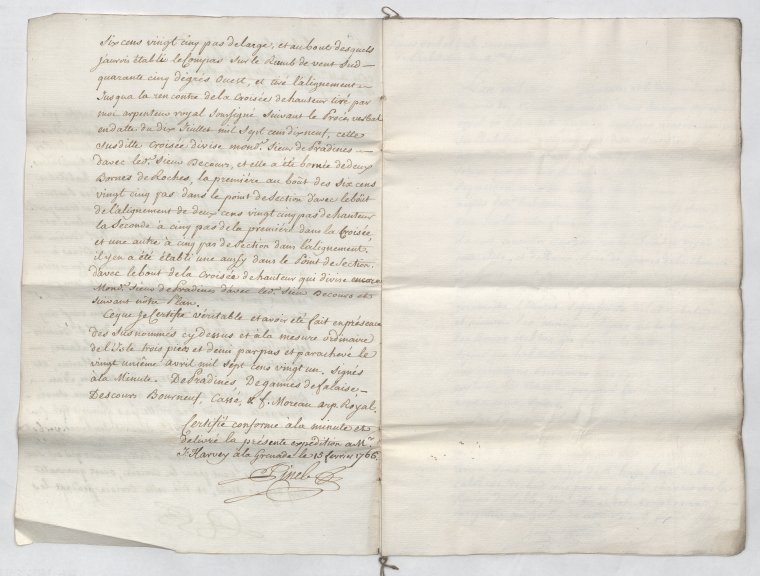 Six cens vingt cinq pas de large, et au bout desquels
jaurois établi le Compas sur le Rumb de vent Sud
quarante cinq dégrés Ouest, et tiré l'alignement
Jusqua la rencontre de la Croisée de hauteur tiré par
moi arpenteur royal Soussigné suivant le Procès verbal
en datte du dix Juillet mil Sept cens dix neuf, cette
susditte Croisée divise mond. Sieur de Pradines
d'avec led. Sieur Decours, et elle a été bornée de deux
Bornes de Roches, la première au bout des Six cens
vingt cinq pas dans le point de Section d'avec le bout
de l'alignement de deux cens vingt cinq pas de hauteur
la Seconde à cinq pas de la première dans la Croisée,
et une autre à cinq pas de Section dans l'alignement.
il y en a été établi une aussy dans le Point de Section
d'avec le bout de la Croisée de hauteur qui divise encore
Mond. Sieur de Pradines d'avec led. Sieur Decours et
suivant nôtre Plan.
Ce que Je Certifie véritable et avoir été fait en présence
des Susnommés cy dessus et à la mesure ordinaire
de l'Isle trois pieds et demi par pas et parachevé le
vingt unième avril mil Sept cens vingt un. Signés
à la Minute. De Pradines, Degannes de falaise
Descours Bourneuf, Cassé, & f. Moreau arp. Royal,
Certifié conforme à la minute et
delivré la présente expédition a Mr.
Js. Harvey à la Grenade le 13 fevrier 1766
Pinel